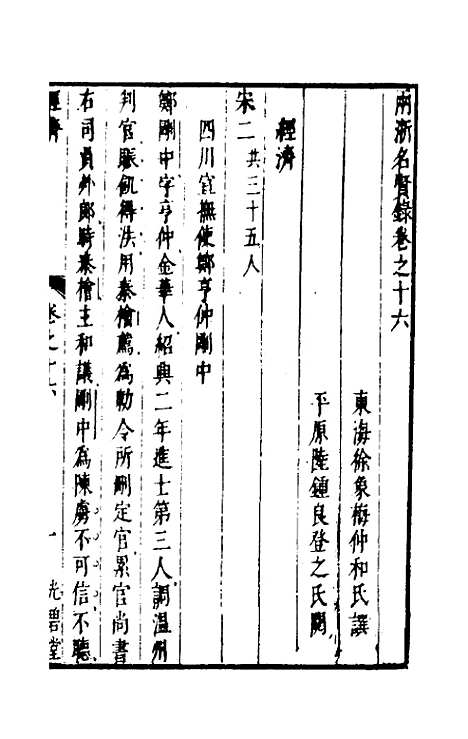 兩浙名賢錄卷之十六
東海徐象梅仲和氏譔
平原陸鍾良登之氏閱
經濟
宋二共三十五人
四川宣撫使鄭亨仲剛中
鄭剛中字亨仲金華人紹興二年進士第三人調溫州
判官賑飢得法用秦檜薦爲勅令所刪定官累官尚書
右司員外郎時秦檜主和議剛中爲陳虜不可信不聽
經濟
卷之十六
一
光碧堂